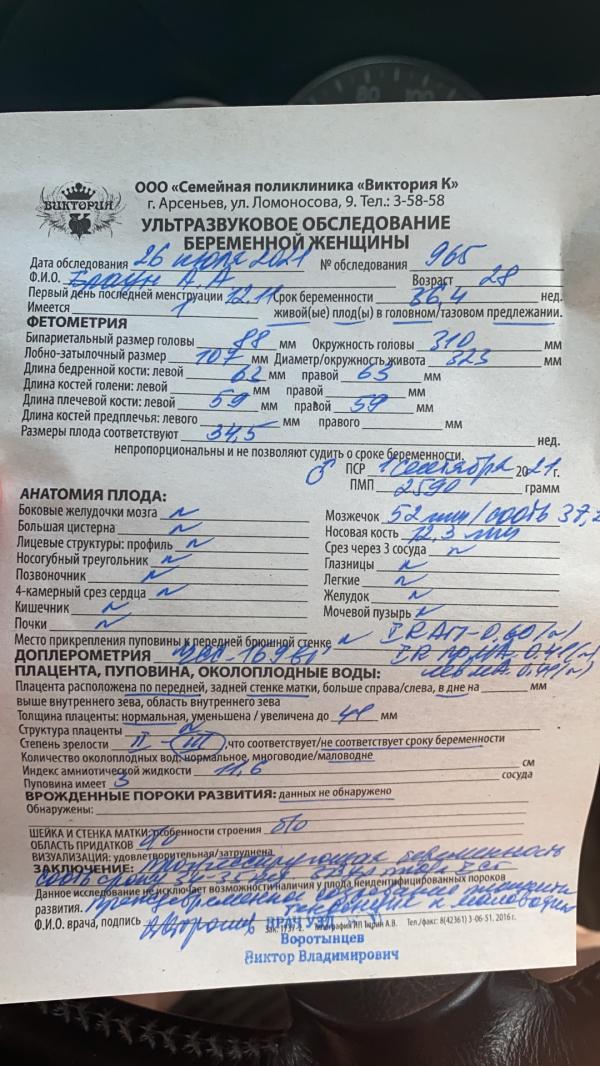 80 100
ВИКТОРИЯ
К
ООО «Семейная поликлиника «Виктория К»
г. Арсеньев, ул. Ломоносова, 9. Тел.: 3-58-58
УЛЬТРАЗВУКОВОЕ ОБСЛЕДОВАНИЕ
БЕРЕМЕННОЙ ЖЕНЩИНЫ
Дата обследования 26 июля 2021 № обследования 965
Ф.И.О. Браун А.А Возраст 28
Первый день последней менструации 12.11 Срок беременности 36,4 нед.
Имеется 1 живой(ые) плод(ы) в головном/тазовом предлежании.
ФЕТОМЕТРИЯ
Бипариетальный размер головы 88 мм Окружность головы 310 мм
Лобно-затылочный размер 107 мм Диаметр/окружность живота 323 мм
Длина бедренной кости: левой 63 мм правой 63 мм
Длина костей голени: левой мм правой мм
Длина плечевой кости: левой 59 мм правой 59 мм
Длина костей предплечья: левого мм правого мм
Размеры плода соответствуют 34,5 нед.
непропорциональны и не позволяют судить о сроке беременности.
♂ ПСР 1 сентября 2021 г.
ПМП 2590 грамм
АНАТОМИЯ ПЛОДА:
Боковые желудочки мозга N
Большая цистерна N
Лицевые структуры: профиль N
Носогубный треугольник N
Позвоночник N
4-камерный срез сердца N
Кишечник N
Почки N
Мозжечок 52 мм/соотв 37,2
Носовая кость 12,3 мм
Срез через 3 сосуда N
Глазницы N
Легкие N
Желудок N
Мочевой пузырь N
Место прикрепления пуповины к передней брюшной стенке N IR АП-0.60 (N)
ДОПЛЕРОМЕТРИЯ ЧСС-169 IR
ПЛАЦЕНТА, ПУПОВИНА, ОКОЛОПЛОДНЫЕ ВОДЫ:
Плацента расположена по передней, задней стенке матки, больше справа/слева, в дне на мм
выше внутреннего зева, область внутреннего зева
Толщина плаценты: нормальная, уменьшена / увеличена до мм
Структура плаценты N
Степень зрелости II - III, что соответствует/не соответствует сроку беременности
Количество околоплодных вод: нормальное, многоводие/маловодие
Индекс амниотической жидкости 11,6 см
Пуповина имеет 3 сосуда
ВРОЖДЕННЫЕ ПОРОКИ РАЗВИТИЯ: данных не обнаружено
Обнаружены:
ШЕЙКА И СТЕНКА МАТКИ: особенности строения б/о
ОБЛАСТЬ ПРИДАТКОВ
ВИЗУАЛИЗАЦИЯ: удовлетворительна/затруднена
ЗАКЛЮЧЕНИЕ: Прогрессирующая беременность
Данное исследование не исключает возможности наличия у плода неидентифицированных пороков
развития. Преждевременное созревание плаценты
тенденция к маловодию
Ф.И.О. врача, подпись
Зак. 1737-2. Типография ИП Тюрин А.В. Тел./факс: 8(42361) 3-06-51. 2016 г.
ВРАЧ УЗД
Воротынцев
Виктор Владимирович